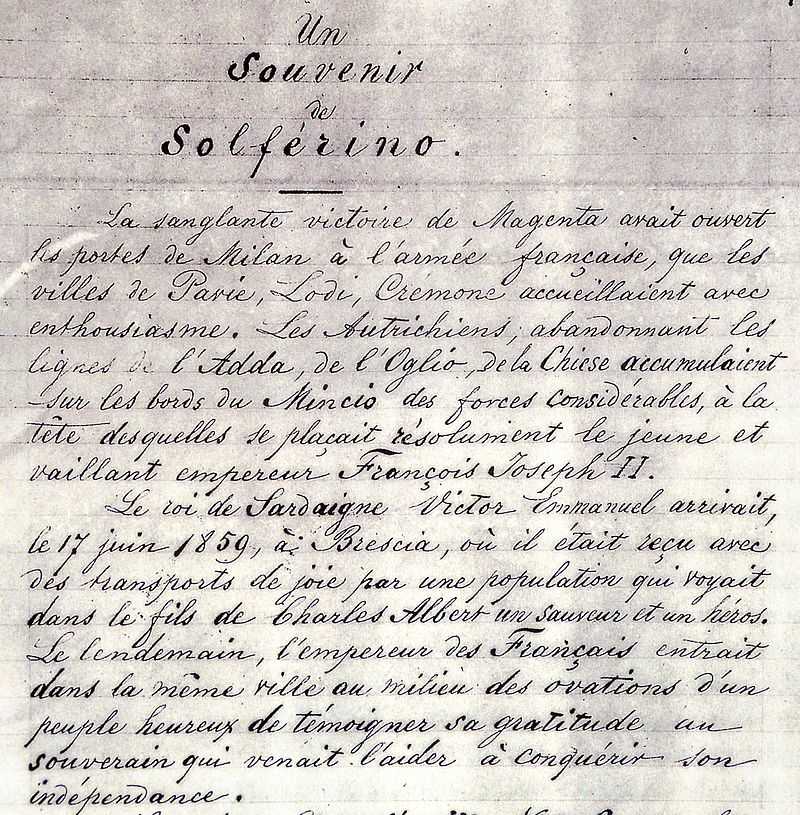 Un
Souvenir
de
Solférino.
La sanglante victoire de Magenta avait ouvert
les portes de Milan à l'armée française, que les
villes de Pavie, Lodi, Crémone accueillaient avec
enthousiasme. Les Autrichiens, abandonnant les
lignes de l'Adda, de l'Oglio, de la Chiese accumulaient
sur les bords du Mincio des forces considérables, à la
tête desquelles se plaçait résolument le jeune et
vaillant empereur François Joseph II.
Le roi de Sardaigne Victor Emmanuel arrivait,
le 17 juin 1859, à Brescia, où il était reçu avec
des transports de joie par une population qui voyait
dans le fils de Charles Albert un sauveur et un héros.
Le lendemain, l'empereur des Français entrait
dans la même ville au milieu des ovations d'un
peuple heureux de témoigner sa gratitude au
souverain qui venait l'aider à conquérir son
indépendance.